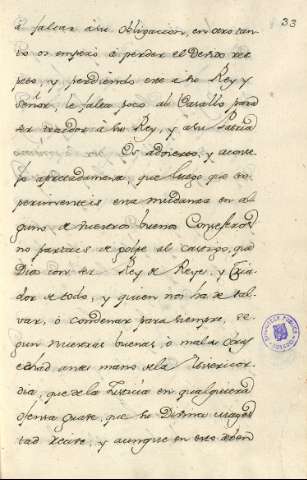 33
à faltar à su obligacion, en otro tan
to os empeso à perder el Devido res
peto, y perdiendo este à su Rey y
Señor, le falta poco al Vasallo para
ser traidor à su Rey, y à su Patria
Os advierto, y aconse
jo apretadamente, que luego que ex
perimenteis una mudanza en al
guno de vuestros buenos Consejeros
no paseis de golpe al castigo, que
Dios con ser Rey de Reyes, y Cria
dor de todo, y quien nos ha de sal
var, ò condenar para siempre, se
gun nuestras buenas, ò malas obras
echad antes mano de la Misericor
dia, que de la Justicia en qualquiera
ofensa grave, que su Divina Mages
tad recive, y aunque en esto deben